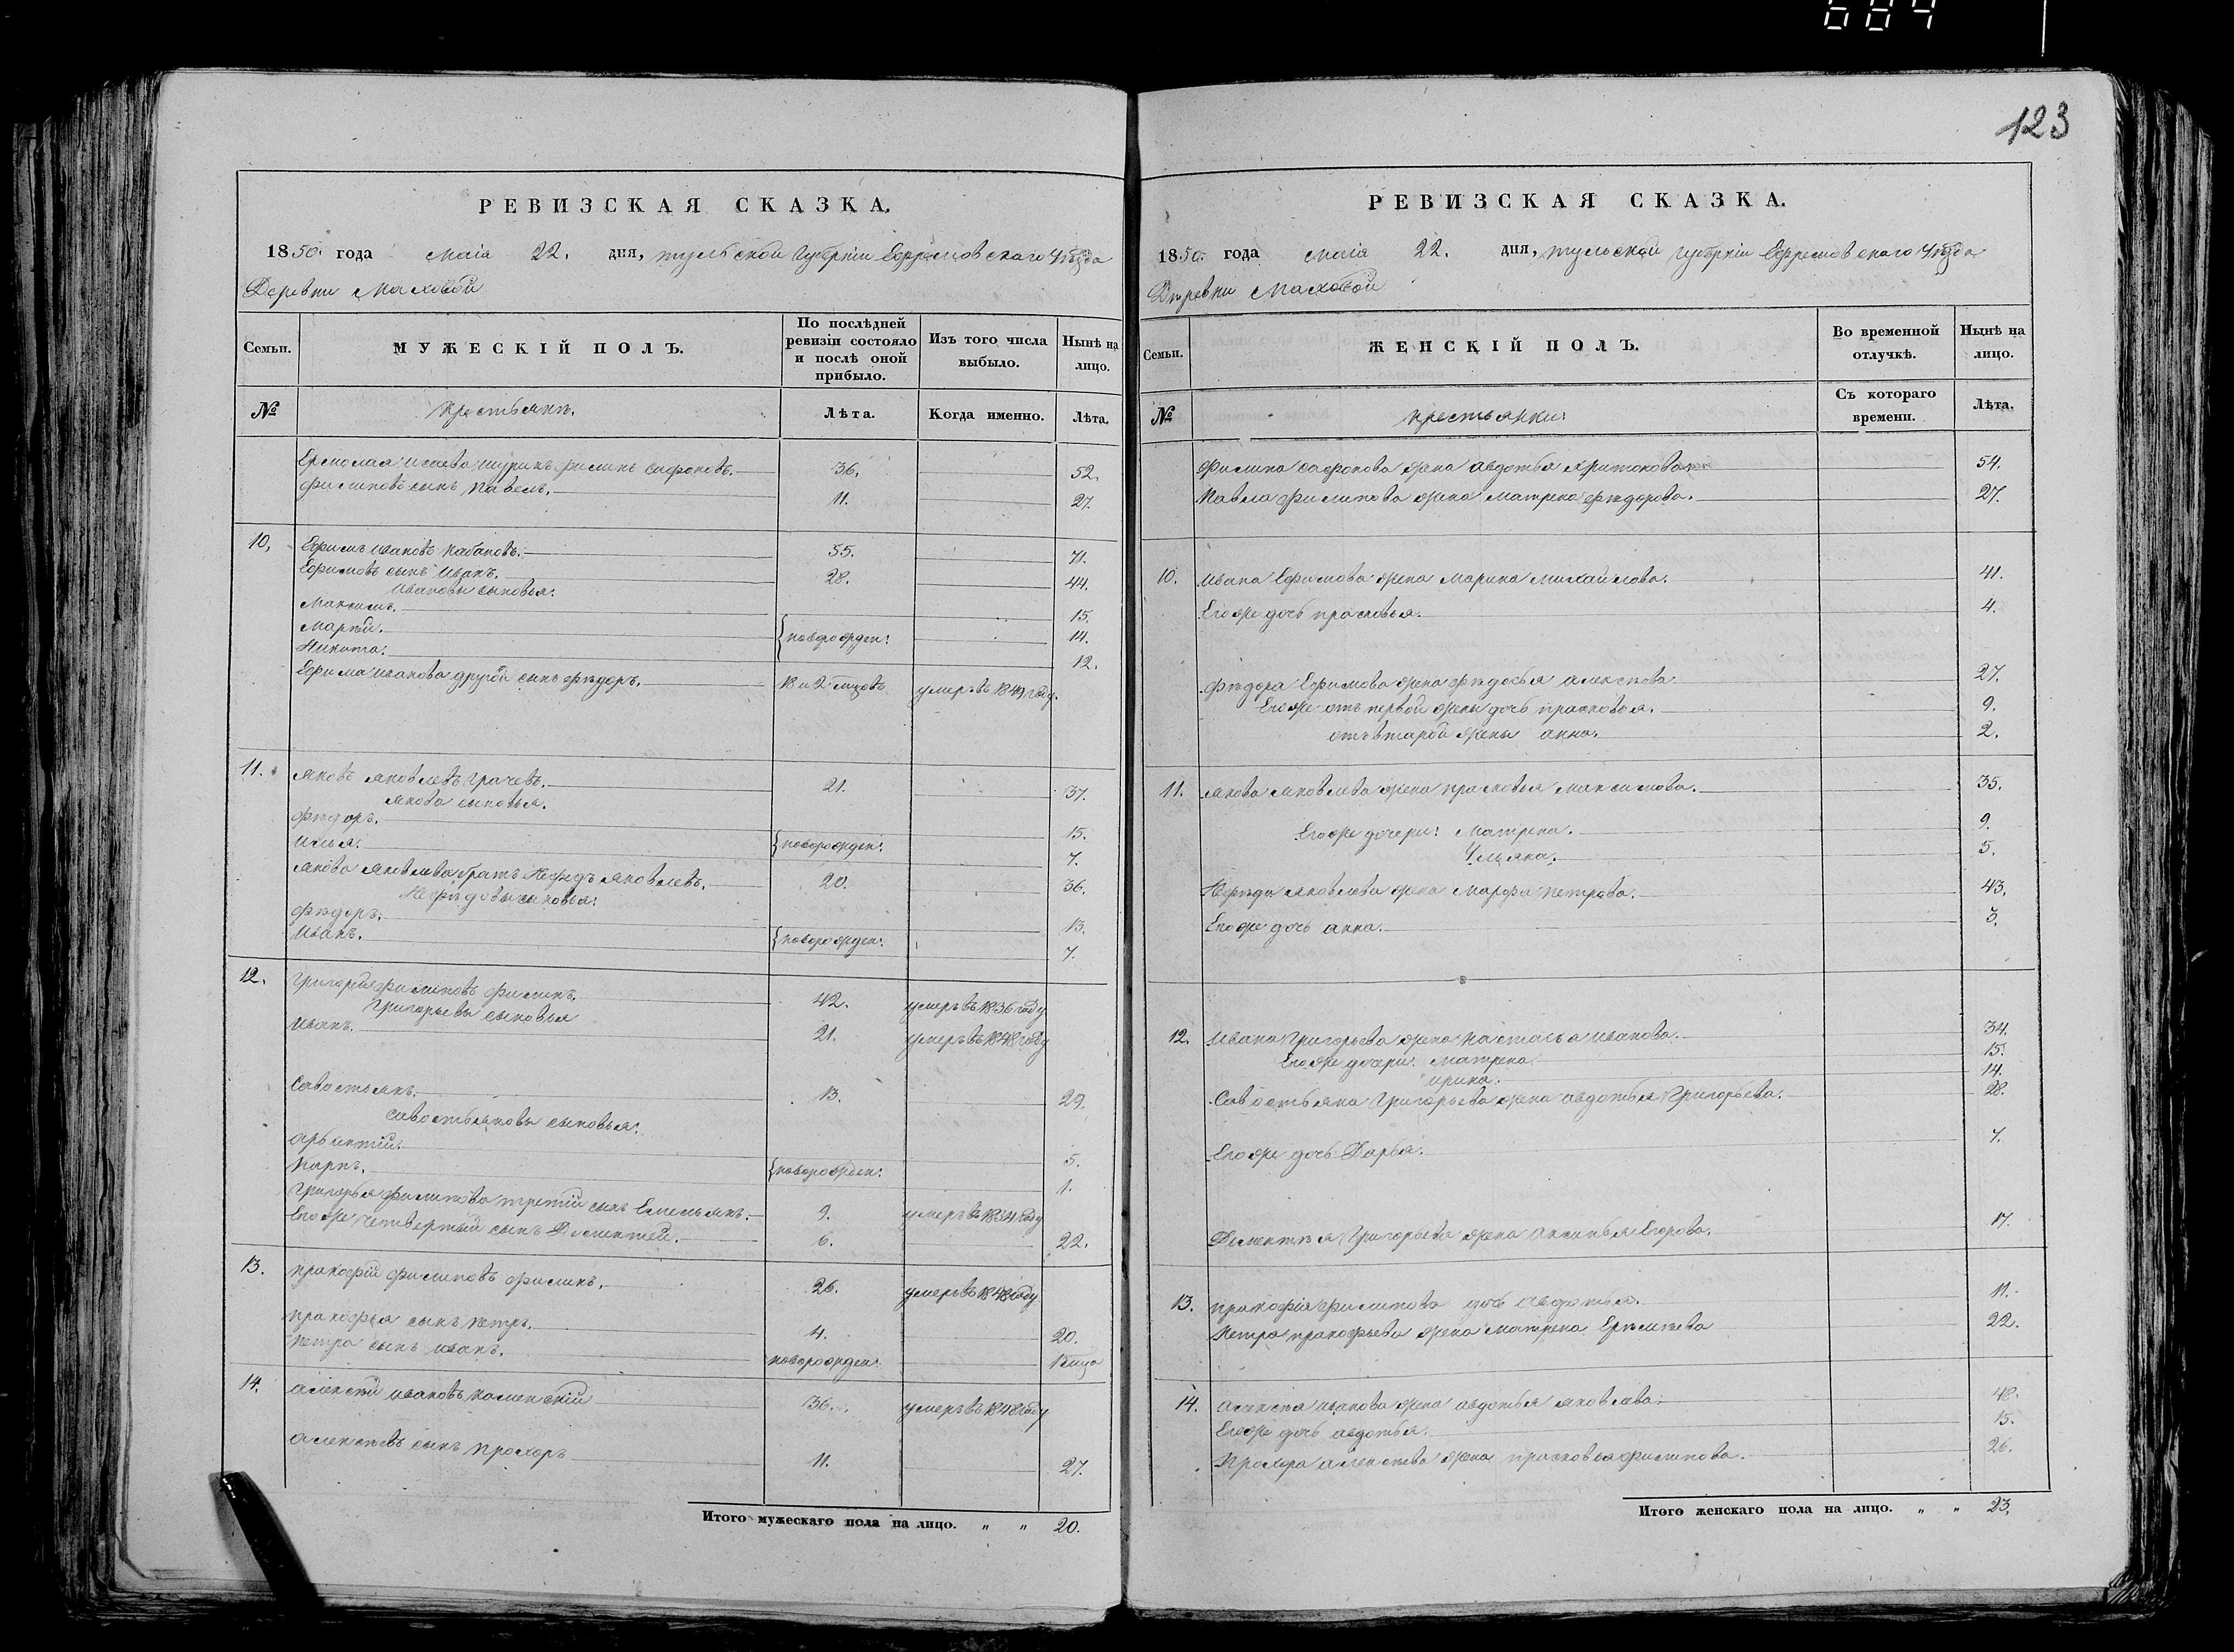 684
123
РЕВИЗСКАЯ СКАЗКА.
1850. года Маія 22. дня, тульской Губерніи Ефремовскаго Уѣзда
Деревни Маховой
Семьи. МУЖЕСКІЙ ПОЛЪ. По послѣдней ревизіи состояло и послѣ оной прибыло. Изъ того числа выбыло. Нынѣ на лицо.
№ Крестьянъ. Лѣта. Когда именно. Лѣта.
Ермолая Исаева шуринъ Филипъ Сафоновъ. 36. 52.
Филиповъ сынъ Павелъ. 11. 27.
10. Ефимъ Ивановъ Кабановъ. 55. 71.
Ефимовъ сынъ Иванъ. 28. 44.
Ивановы сыновья:
Максимъ. 15.
Маркѣй. новорожден: 14.
Никита. 12.
Ефима Иванова другой сынъ Фѣдоръ. 18 и 2 мцовъ умеръ въ 1849 году.
11. Яковъ Яковлевъ Грачевъ. 21. 37.
Якова сыновья.
Фѣдоръ. 15.
Илья. новорожден: 7.
Якова Яковлева братъ Нефедъ Яковлевъ. 20. 36.
Нефѣдовы сыновья:
Фѣдоръ. 13.
Иванъ. новорожден: 7.
12. Григорей Филиповъ Филинъ. 42. умеръ въ 1836 году
Григорьевы сыновья
Иванъ. 21. умеръ въ 1848 году
Савостьянъ. 13. 29.
Савостьяновы сыновья:
Карпъ. новорожден: 5.
1.
Григорья Филипова третій сынъ Емельянъ. 9. умеръ въ 1834 году
Егоже четвертый сынъ Дементей. 6. 22.
13. Прокофій Филиповъ Филинъ. 26. умеръ въ 1848 году
Прокофья сынъ Петръ. 4. 20.
Петра сынъ Иванъ. новорожден:
14. Алексѣй Ивановъ Каменскій 36. умеръ въ 1848 году
Алексѣевъ сынъ Прохоръ 11. 27.
Итого мужескаго пола на лицо. „ „ 20.
РЕВИЗСКАЯ СКАЗКА.
1850. года Маія 22. дня, тульской Губерніи Ефремовскаго Уѣзда
Деревни Маховой
Семьи. ЖЕНСКІЙ ПОЛЪ. Во временной отлучкѣ. Нынѣ на лицо.
№ Крестьянки: Съ котораго времени. Лѣта.
Филипа Сафонова жена Авдотья 54.
Павла Филипова жена Матрена Фѣдорова. 27.
10. Ивана Ефимова жена Марина Михайлова. 41.
Егоже дочь Прасковья. 4.
Фѣдора Ефимова жена Фѣдосья Алексѣева 27.
Егоже отъ первой жены дочь Прасковья. 9.
отъ второй жены Анна. 2.
11. Якова Яковлева жена Прасковья Максимова. 35.
Егоже дочери: Матрена. 9.
Ульяна. 5.
Нефѣда Яковлева жена Марфа Петрова. 43.
Егоже дочь Анна. 3.
12. Ивана Григорьева жена Настасья Иванова. 34.
Егоже дочери: Матрена 15.
Ирина. 14.
Савостьяна Григорьева жена Авдотья Григорьева. 28.
Егоже дочь Дарья. 7.
Дементья Григорьева жена Аксинья Егорова. 17.
13. Прокофія Филипова дочь Авдотья. 11.
Петра Прокофьева жена Матрена 22.
14. Алексѣя Иванова жена Авдотья Яковлева. 48.
Егоже дочь Авдотья. 15.
Прохора Алексѣева жена Прасковья Филипова. 26.
Итого женскаго пола на лицо. „ „ 23.